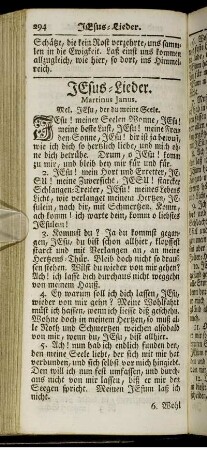 294 JEsus-Lieder.
Schätze, die kein Rost verzehrte, und samm-
len in die Ewigkeit. Laß einst uns kommen
allzugleich, wie hier, so dort, ins Himmel-
reich.
JEsus-Lieder.
Martinus Janus.
Mel. JEsu, der du meine Seele.
JEsu! meiner Seelen Wonne, JEsu!
meine beste Lust, JEsu! meine Freu-
den Sonne, JEsu! dir ist ja bewust,
wie ich dich so hertzlich liebe, und mich oh-
ne dich betrübe. Drum, o JEsu! komm
zu mir, und bleib bey mir für und für.
2. JEsu! mein Hort und Erretter, JE-
su! meine Zuversicht, JESU! starcker
Schlangen-Treter, JEsu! meines Lebens
Licht, wie verlanget meinem Hertzen, JE-
sulein, nach dir, mit Schmertzen. Komm,
ach komm! ich warte dein, komm o liebstes
JEsulein!
3. Kommst du? Ja du kommst gegan-
gen, JEsu, du bist schon allhier, klopffest
starck und mit Verlangen an, an meine
Hertzens-Thür. Bleib doch nicht so draus-
sen stehen. Wilst du wieder von mir gehen?
Ach! ich lasse dich durchaus nicht weggehn
von meinem Hauß.
4. Ey warum soll ich dich lassen, JEsu,
wieder von mir gehn? Meine Wohlfahrt
müst ich hassen, wenn ich liesse diß geschehn.
Wohne doch in meinem Hertzen, so muß al-
le Noth und Schmertzen weichen alsobald
von mir, wenn du, JEsu, bist allhier.
5. Ach! nun hab ich endlich funden der,
den meine Seele liebt, der sich mit mir hat
verbunden, und sich selbst vor mich hingiebt.
Den will ich nun fest umfassen, und durch-
aus nicht von mir lassen, biß er mir den
Seegen spricht. Meinen JEsum laß ich
nicht.
6. Wohl